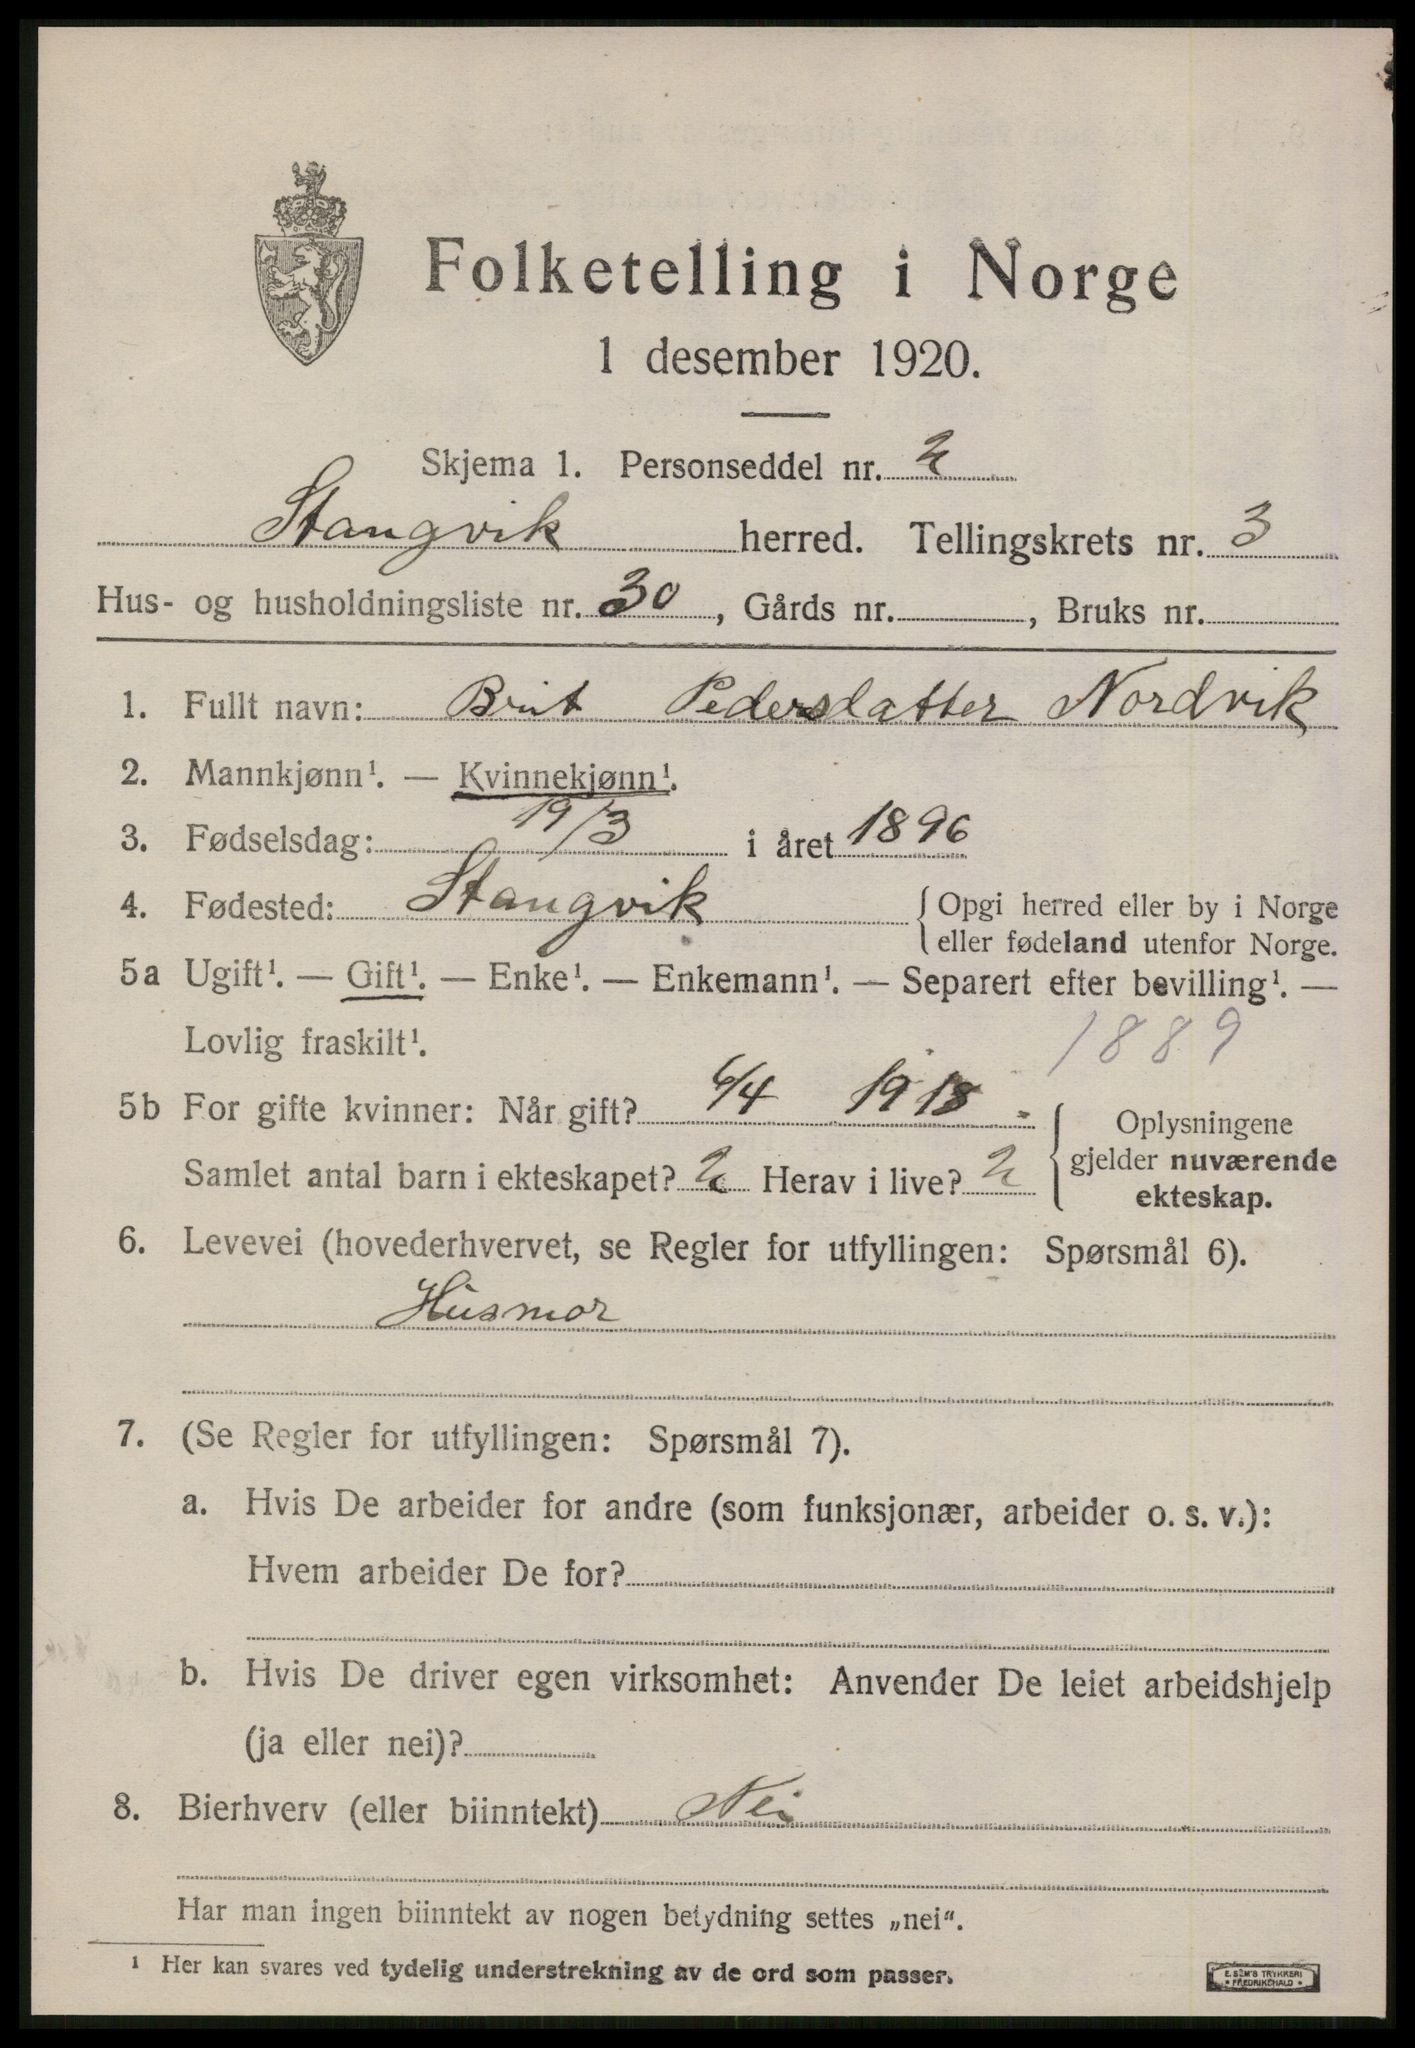 Folketelling i Norge
1 desember 1920.
Skjema 1. Personseddel nr. 2
Stangvik herred. Tellingskrets nr. 3
Hus- og husholdningsliste nr. 30, Gårds nr. , Bruks nr.
1. Fullt navn: Brit Pedersdatter Nordvik
2. Mannkjønn¹. — Kvinnekjønn¹.
3. Fødselsdag: 19/3 i året 1896
4. Fødested: Stangvik { Opgi herred eller by i Norge
eller fødeland utenfor Norge.
5a Ugift¹. — Gift¹. — Enke¹. — Enkemann¹. — Separert efter bevilling¹. —
Lovlig fraskilt¹. 1889
5b For gifte kvinner: Når gift? 6/4 1918. { Oplysningene
Samlet antal barn i ekteskapet? 2 Herav i live? 2 gjelder nuværende
ekteskap.
6. Levevei (hovederhvervet, se Regler for utfyllingen: Spørsmål 6).
Husmor
7. (Se Regler for utfyllingen: Spørsmål 7).
a. Hvis De arbeider for andre (som funksjonær, arbeider o. s. v.):
Hvem arbeider De for?
b. Hvis De driver egen virksomhet: Anvender De leiet arbeidshjelp
(ja eller nei)?
8. Bierhverv (eller biinntekt) Nei
Har man ingen biinntekt av nogen betydning settes „nei“.
¹ Her kan svares ved tydelig understrekning av de ord som passer.
E. SEM'S TRYKKERI
• FREDRIKSHALD •